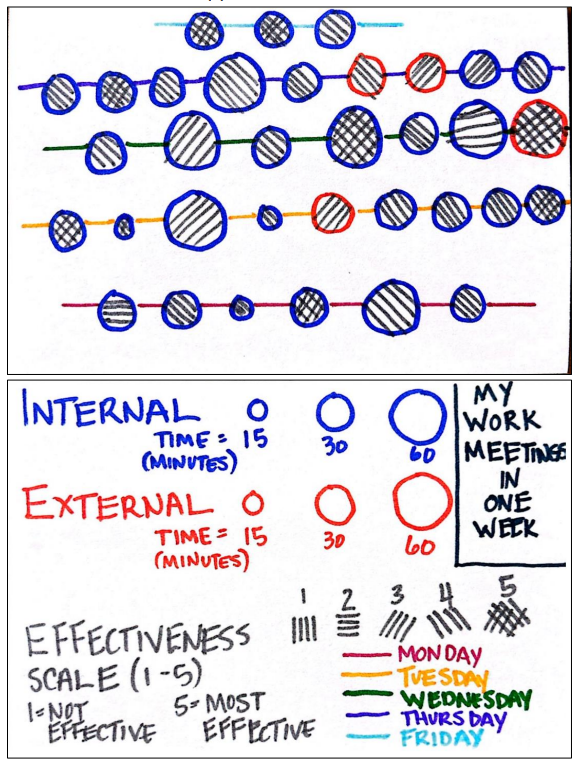 INTERNAL
TIME = 15 30 60
(MINUTES)
EXTERNAL
TIME = 15 30 60
(MINUTES)
MY
WORK
MEETINGS
IN
ONE
WEEK
EFFECTIVENESS
SCALE (1-5)
1=NOT
EFFECTIVE
5=MOST
EFFECTIVE
1 2 3 4 5
MONDAY
TUESDAY
WEDNESDAY
THURSDAY
FRIDAY